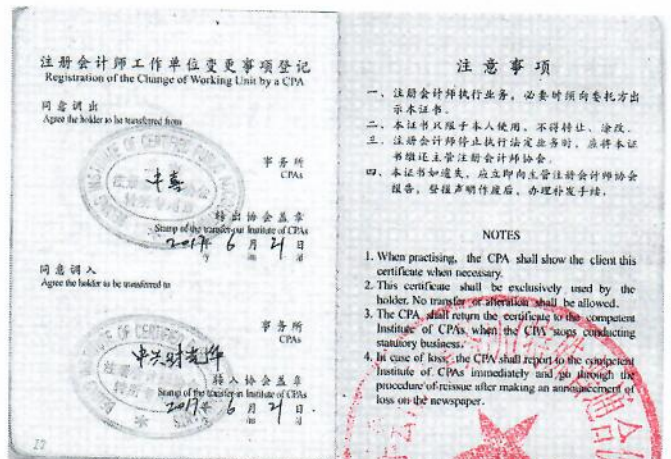 注册会计师工作单位变更事项登记
Registration of the Change of Working Unit by a CPA
同意调出
Agree the holder to be transferred from
中喜
事务所
CPAs
转出协会盖章
Stamp of the transfer-out Institute of CPAs
2017年 6 月 21 日
/y /m /d
同意调入
Agree the holder to be transferred to
中兴财光华
事务所
CPAs
转入协会盖章
Stamp of the transfer-in Institute of CPAs
2017年 6 月 21 日
/m /d
12
注意事项
一、注册会计师执行业务，必要时须向委托方出
示本证书。
二、本证书只限于本人使用，不得转让、涂改。
三、注册会计师停止执行法定业务时，应将本证
书缴还主管注册会计师协会。
四、本证书如遗失，应立即向主管注册会计师协会
报告，登报声明作废后，办理补发手续。
NOTES
1. When practising, the CPA shall show the client this
certificate when necessary.
2. This certificate shall be exclusively used by the
holder. No transfer or alteration shall be allowed.
3. The CPA shall return the certificate to the competent
Institute of CPAs when the CPA stops conducting
statutory business.
4. In case of loss, the CPA shall report to the competent
Institute of CPAs immediately and go through the
procedure of reissue after making an announcement of
loss on the newspaper.